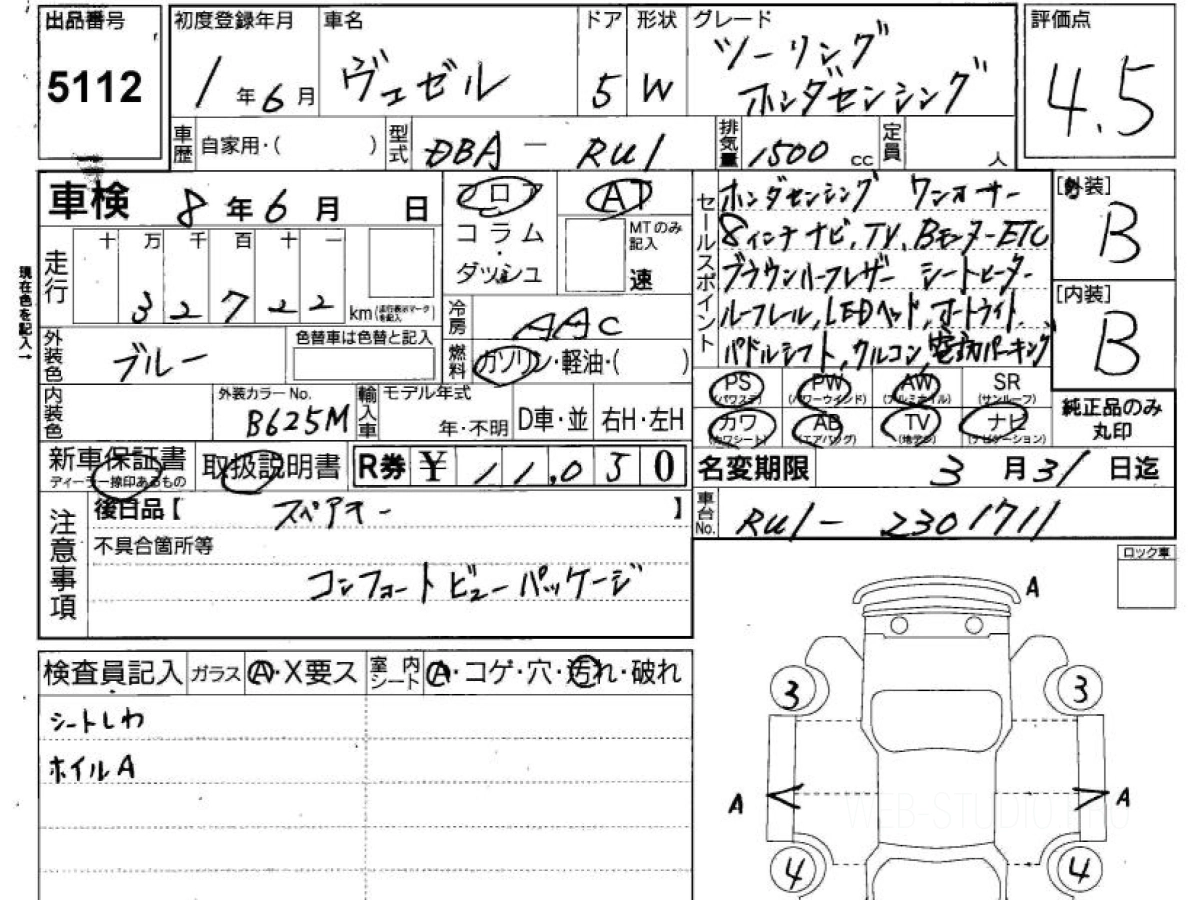 出品番号 初度登録年月 車名 ドア 形状 グレード 評価点
5112 1年6月 ヴェゼル 5 W ツーリング
ホンダセンシング 4.5
車歴 自家用・( ) 型式 DBA - RU1 排気量 1500 cc 定員 人
車検 8年6月 日 フロア AT セールスポイント ホンダセンシング ワンオーナー [外装] B
コラム MTのみ記入 8インチナビ,TV,Bモニター ETC
走行 十 万 千 百 十 一 ・ダッシュ 速 ブラウンハーフレザー シートヒーター
32722 km(走行表示マークを記入) 冷房 AAC ルーフレール,LEDヘッド,オートライト [内装] B
現在色を記入→
外装色 ブルー 色替車は色替と記入 燃料 ガソリン・軽油・( ) パドルシフト,クルコン 電動パーキング
内装色 外装カラーNo. B625M 輸入車 モデル年式 年・不明 D車・並 右H・左H
PS(パワステ) PW(パワーウインド) AW(アルミホイル) SR(サンルーフ) 純正品のみ丸印
カワ(カワシート) AB(エアバッグ) TV(地デジ) ナビ(ナビゲーション)
新車保証書 ディーラー捺印あるもの 取扱説明書 R券 ¥ 11,050 名変期限 3月31日迄
注意事項 後日品【 スペアキー 】 車台No. RU1-2301711
不具合箇所等
コンフォートビューパッケージ
ロック車
A
検査員記入 ガラス A・X要ス 室内シート A・コゲ・穴・汚れ・破れ
シートしわ 3 3
ホイルA
A A
WEB-STUDIO.PRO
4 4